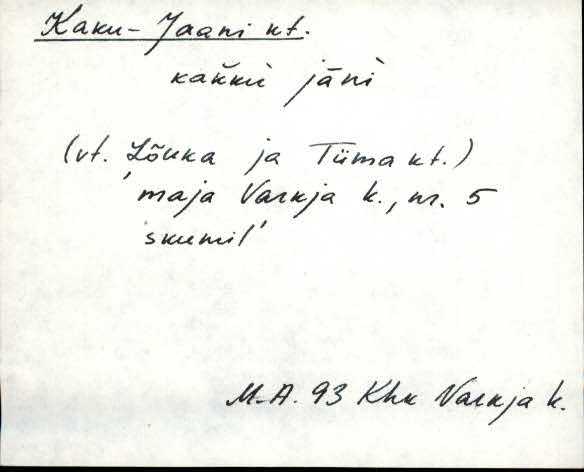 Kaku-Jaani kt.
kak̆kù jānì
(vt. Lõuka ja Tiima kt.)
'maja Varkja k., nr. 5
skeemil'
M.A. 93 Khk Varkja k.